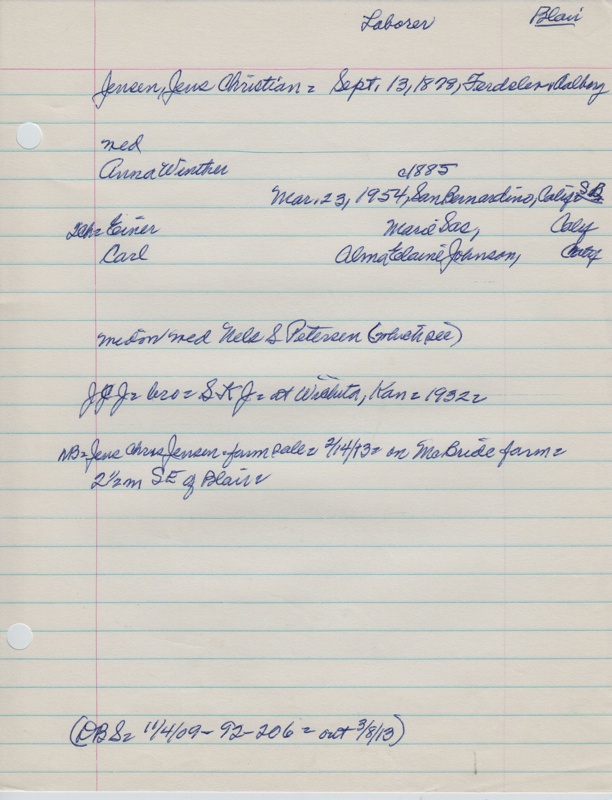 Laborer Blair
Jensen, Jens Christian = Sept. 13, 1878, Ferdslev, Aalborg
med
Anna Winther c1885
Mar. 23, 1954, San Bernardino, Calif
Einer Marie Sas, Calif
Carl Alma Elaine Johnson, Calif
med Nels S Petersen (which see)
J C J = bro = S K J = at Wichita, Kan = 1932 =
NB = Jens Chris Jensen = farm sale = 2/14/13 = on McBride farm =
2½ m SE of Blair =
(DBS = 11/4/09 - 92 - 206 = out 3/8/13)